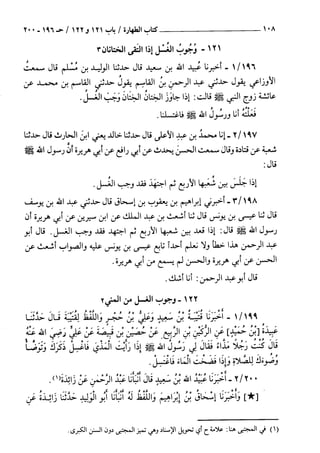 ١٠٨ كتاب الطهارة / باب ١٢١ و ١٢٢ / حـ ١٩٦ - ٢٠٠
١٢١ - وُجُوبُ الغُسْلِ إذَا التَقَى الخِتَانَانِ ٣
١/١٩٦ - أخبرنا عُبَيد الله بن سعيد قال حدثنا الوليد بن مُسْلِم قال سمعتُ
الأوزاعي يقول حدثني عبد الرحمن بنُ القاسِم يقولُ حدثني القاسِم بن محمد عن
عائشة زوج النبي ﷺ قالت: إذا جاوَزَ الخِتانُ الخِتَانَ وَجَبَ الغُسلُ.
فَعَلْتُه أنا ورسولُ الله ﷺ فاغتسلنا.
٢/١٩٧ - إنا محمدُ بن عبدِ الأعلى قال حدثنا خالد يعني ابنَ الحارثِ قال حدثنا
شعبة عن قتادة وقال سمعت الحسنَ يحدث عن أبي رافع عن أبي هريرة أن رسولَ الله ﷺ
قال:
إذا جَلَسَ بين شُعَبِها الأربَعِ ثم اجتهَدَ فقد وجب الغسل.
٣/١٩٨ - أخبرني إبراهيم بن يعقوب بن إسحاق قال حدثني عبد الله بن يوسف
قال ثنا عيسى بن يونس قال ثنا أشعث بن عبد الملك عن ابن سيرين عن أبي هريرة أن
رسول الله ﷺ قال: إذا قعد بين شعبها الأربع ثم اجتهد فقد وجب الغسل. قال أبو
عبد الرحمن هذا خطأ ولا نعلم أحداً تابع عيسى بن يونس عليه والصواب أشعث عن
الحسن عن أبي هريرة والحسن لم يسمع من أبي هريرة.
قال أبو عبد الرحمن: أنا أشك.
١٢٢ - وجوب الغسل من المني ٢
١/١٩٩ - أَخْبَرَنَا قُتَيْبَةُ بْنُ سَعِيدٍ وَعَلِيُّ بْنُ حُجْرٍ وَاللَّفْظُ لِقُتَيْبَةَ قَالَ حَدَّثَنَا
عَبِيدَةُ [بْنُ حُمَيْدٍ] عَنِ الرُّكَيْنِ بْنِ الرَّبِيعِ عَنْ حُصَيْنِ بْنِ قَبِيصَةَ عَنْ عَلِيٍّ رَضِيَ اللهُ عَنْهُ
قَالَ كُنْتُ رَجُلًا مَذَّاءً فَقَالَ لِي رَسُولُ اللهِ ﷺ إِذَا رَأَيْتَ الْمَذْيَ فَاغْسِلْ ذَكَرَكَ وَتَوَضَّأْ
وُضُوءَكَ لِلصَّلَاةِ وَإِذَا فَضَخْتَ الْمَاءَ فَاغْتَسِلْ.
٢/٢٠٠ - أَخْبَرَنَا عُبَيْدُ اللهِ بْنُ سَعِيدٍ قَالَ أَنْبَأَنَا عَبْدُ الرَّحْمَنِ عَنْ زَائِدَةَ(١).
[★] وَأَخْبَرَنَا إِسْحَاقُ بْنُ إِبْرَاهِيمَ وَاللَّفْظُ لَهُ أَنْبَأَنَا أَبُو الْوَلِيدِ حَدَّثَنَا زَائِدَةُ عَنِ
(١) في المجتبى هنا: علامة ح أي تحويل الإسناد وهي تميز المجتبى دون السنن الكبرى.